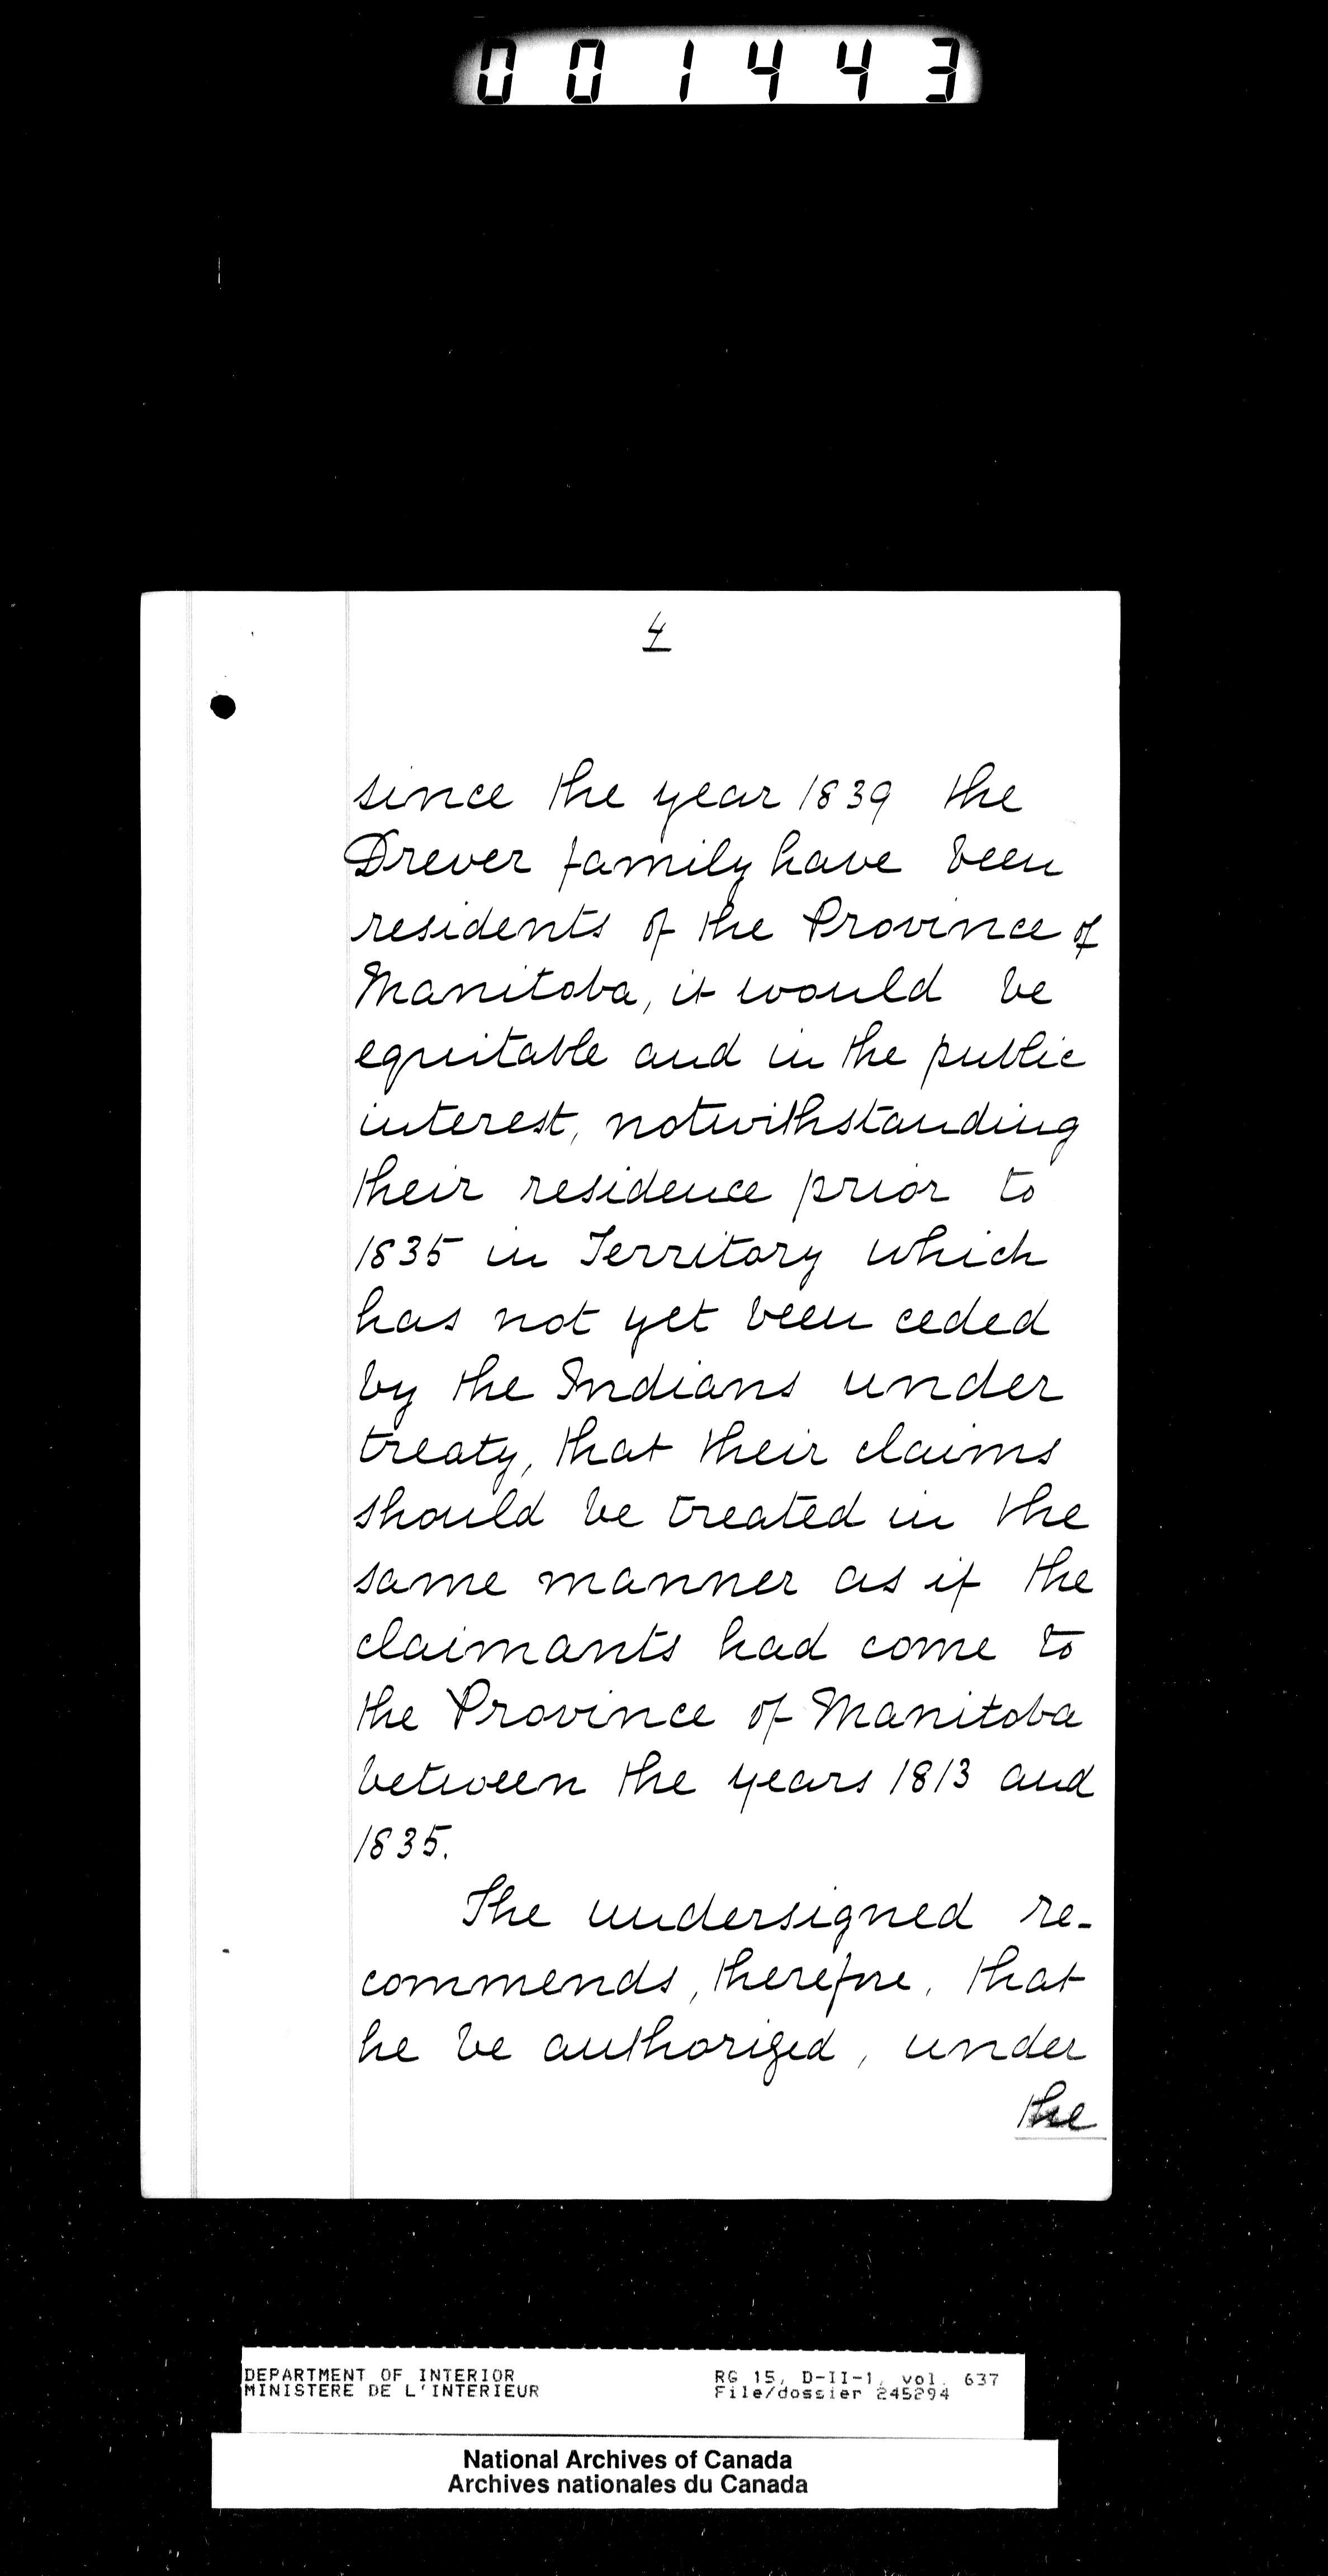 001443
4
since the year 1839 the
Drever family have been
residents of the Province of
Manitoba, it would be
equitable and in the public
interest, notwithstanding
their residence prior to
1835 in Territory which
has not yet been ceded
by the Indians under
treaty, that their claims
should be treated in the
same manner as if the
claimants had come to
the Province of Manitoba
between the years 1813 and
1835.
The undersigned re-
commends, therefore, that
he be authorized, under
the
DEPARTMENT OF INTERIOR RG 15, D-II-1, vol. 637
MINISTERE DE L'INTERIEUR File/dossier 245294
National Archives of Canada
Archives nationales du Canada